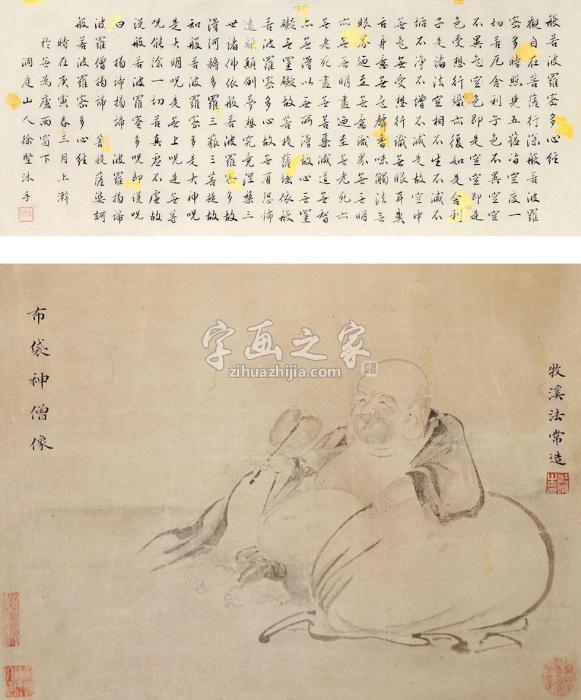 般若波羅蜜多心經
觀自在菩薩行深般若波羅
密多時照見五蘊皆空度一
切苦厄舍利子色不異空空
不異色色即是空空即是
色受想行識亦復如是舍利
子是諸法空相不生不滅不
垢不淨不增不減是故空中
無色無受想行識無眼耳鼻
舌身意無色聲香味觸法無
眼界乃至無意識界無無明
亦無無明盡乃至無老死亦
無老死盡無苦集滅道無智
亦無得以無所得故心無罣
礙無罣礙故菩提薩埵依般
若波羅密多故心無有恐怖
遠離顛倒夢想究竟涅槃三
世諸佛依般若波羅密多故
得阿耨多羅三藐三菩提故
知般若波羅密多是大神咒
是大明咒是無上咒是無等
咒能除一切苦真實不虛故
說般若波羅密多咒即說咒
曰 揭諦揭諦 波羅揭諦
波羅僧揭諦 菩提薩婆訶
般若波羅密多心經
時在庚寅春三月上澣
於無為廬雨窗下
洞庭山人徐堅沐手
牧溪法常造
布袋神僧像
字画之家
zihuazhijia.com